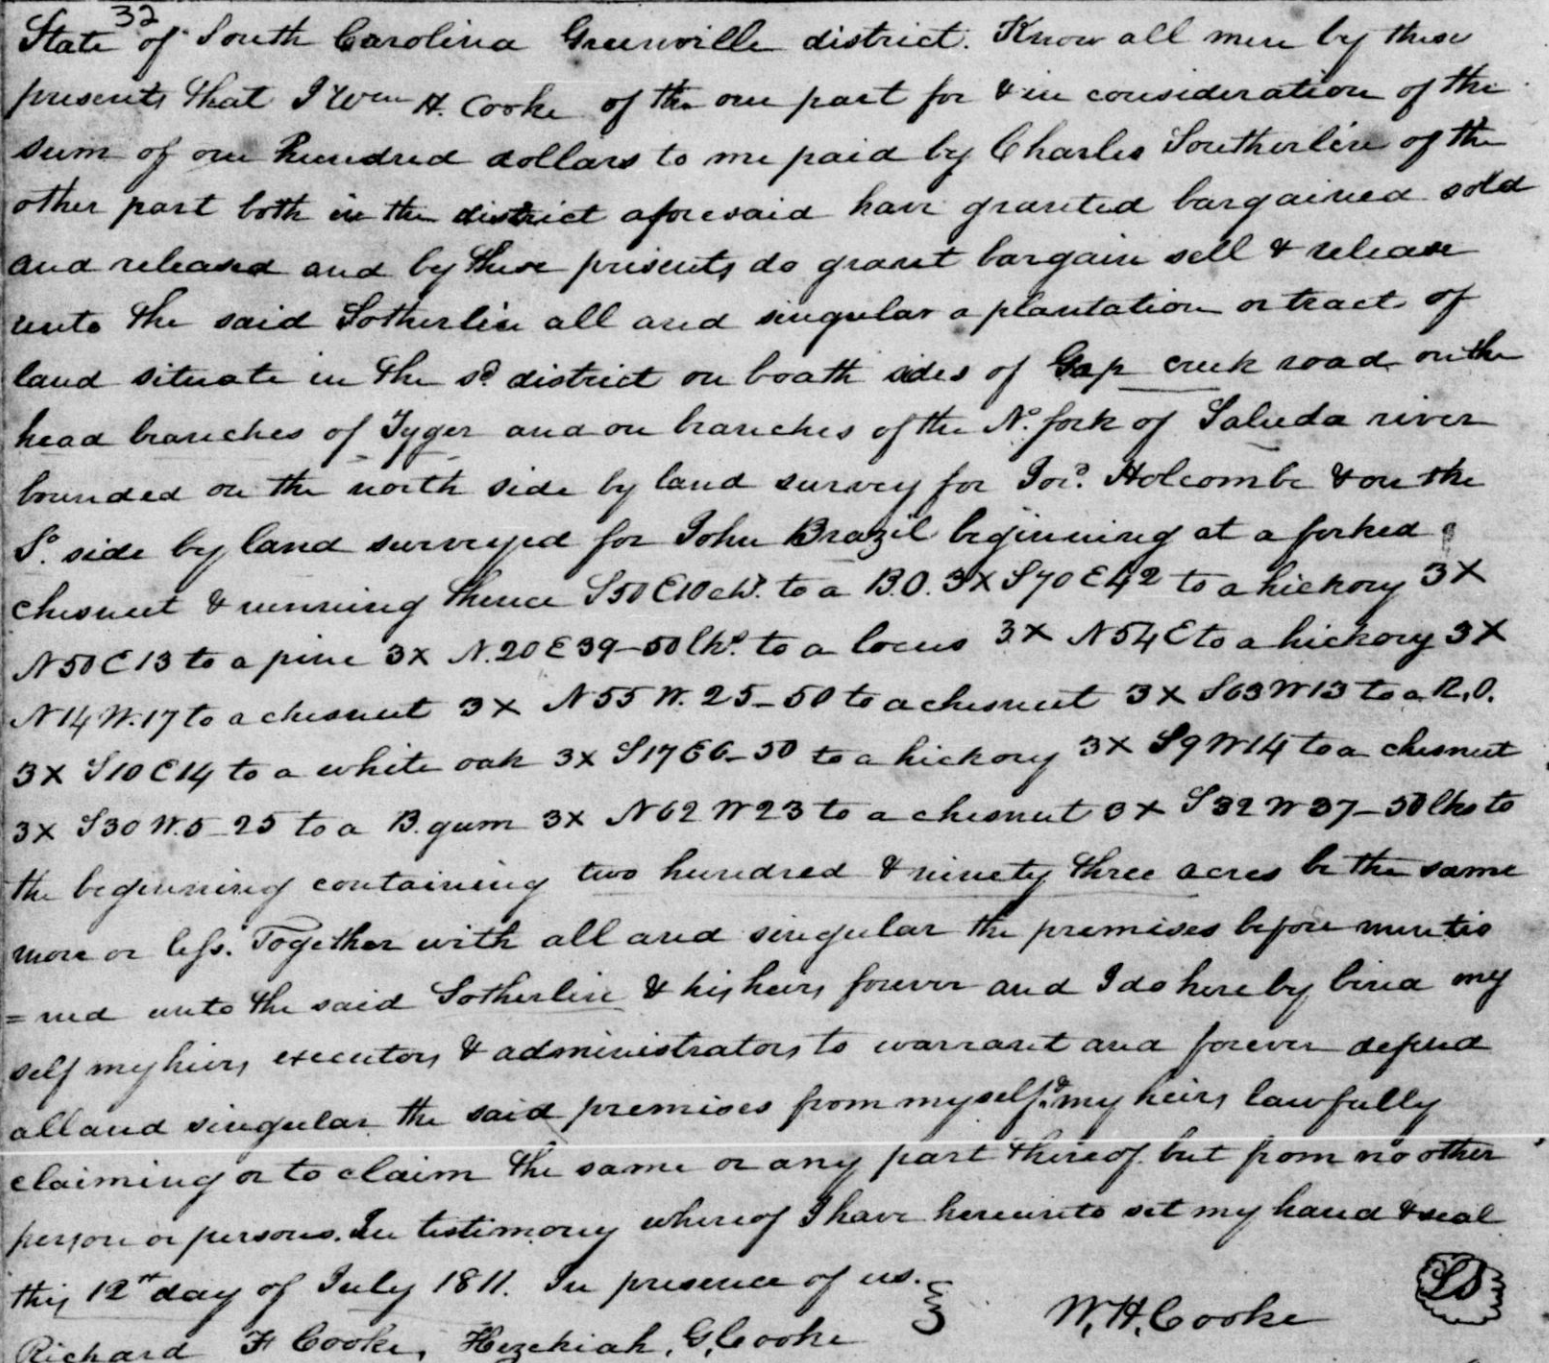 32
State of South Carolina Greenville district. Know all men by these
presents that I Wm H. Cooke of the one part for & in consideration of the
sum of one hundred dollars to me paid by Charles Southerlin of the
other part both in the district aforesaid have granted bargained sold
and released and by these presents do grant bargain sell & release
unto the said Sotherlin all and singular a plantation or tract of
land situate in the sd district on boath sides of Gap creek road on the
head branches of Tyger and on branches of the No. fork of Saluda river
bounded on the north side by land survey for Jos. Holcombe & on the
So. side by land surveyed for John Brazil beginning at a forked
chesnut & running thence S50E10chs. to a B.O. 3X S70E42 to a hickory 3X
N50E13 to a pine 3X N.20E39-50lks. to a locus 3X N54E to a hickory 3X
N14W.17 to a chesnut 3X N55W.25-50 to a chesnut 3X S63W13 to a R.O.
3X S10E14 to a white oak 3X S17E6-50 to a hickory 3X S9W14 to a chesnut
3X S30W.5-25 to a B.gum 3X N62W23 to a chesnut 3X S32W37-50lks to
the beginning containing two hundred & ninety three acres be the same
more or less. Together with all and singular the premises before mentio
=ned unto the said Sotherlin & his heirs forever and I do here by bind my
self my heirs executors & administrators to warrant and forever defend
all and singular the said premises from myself & my heirs lawfully
claiming or to claim the same or any part thereof but from no other
person or persons. In testimony whereof I have hereunto set my hand & seal
this 12th day of July 1811. In presence of us.
W.H.Cooke LS
Richard F Cooke, Hezekiah.G.Cooke